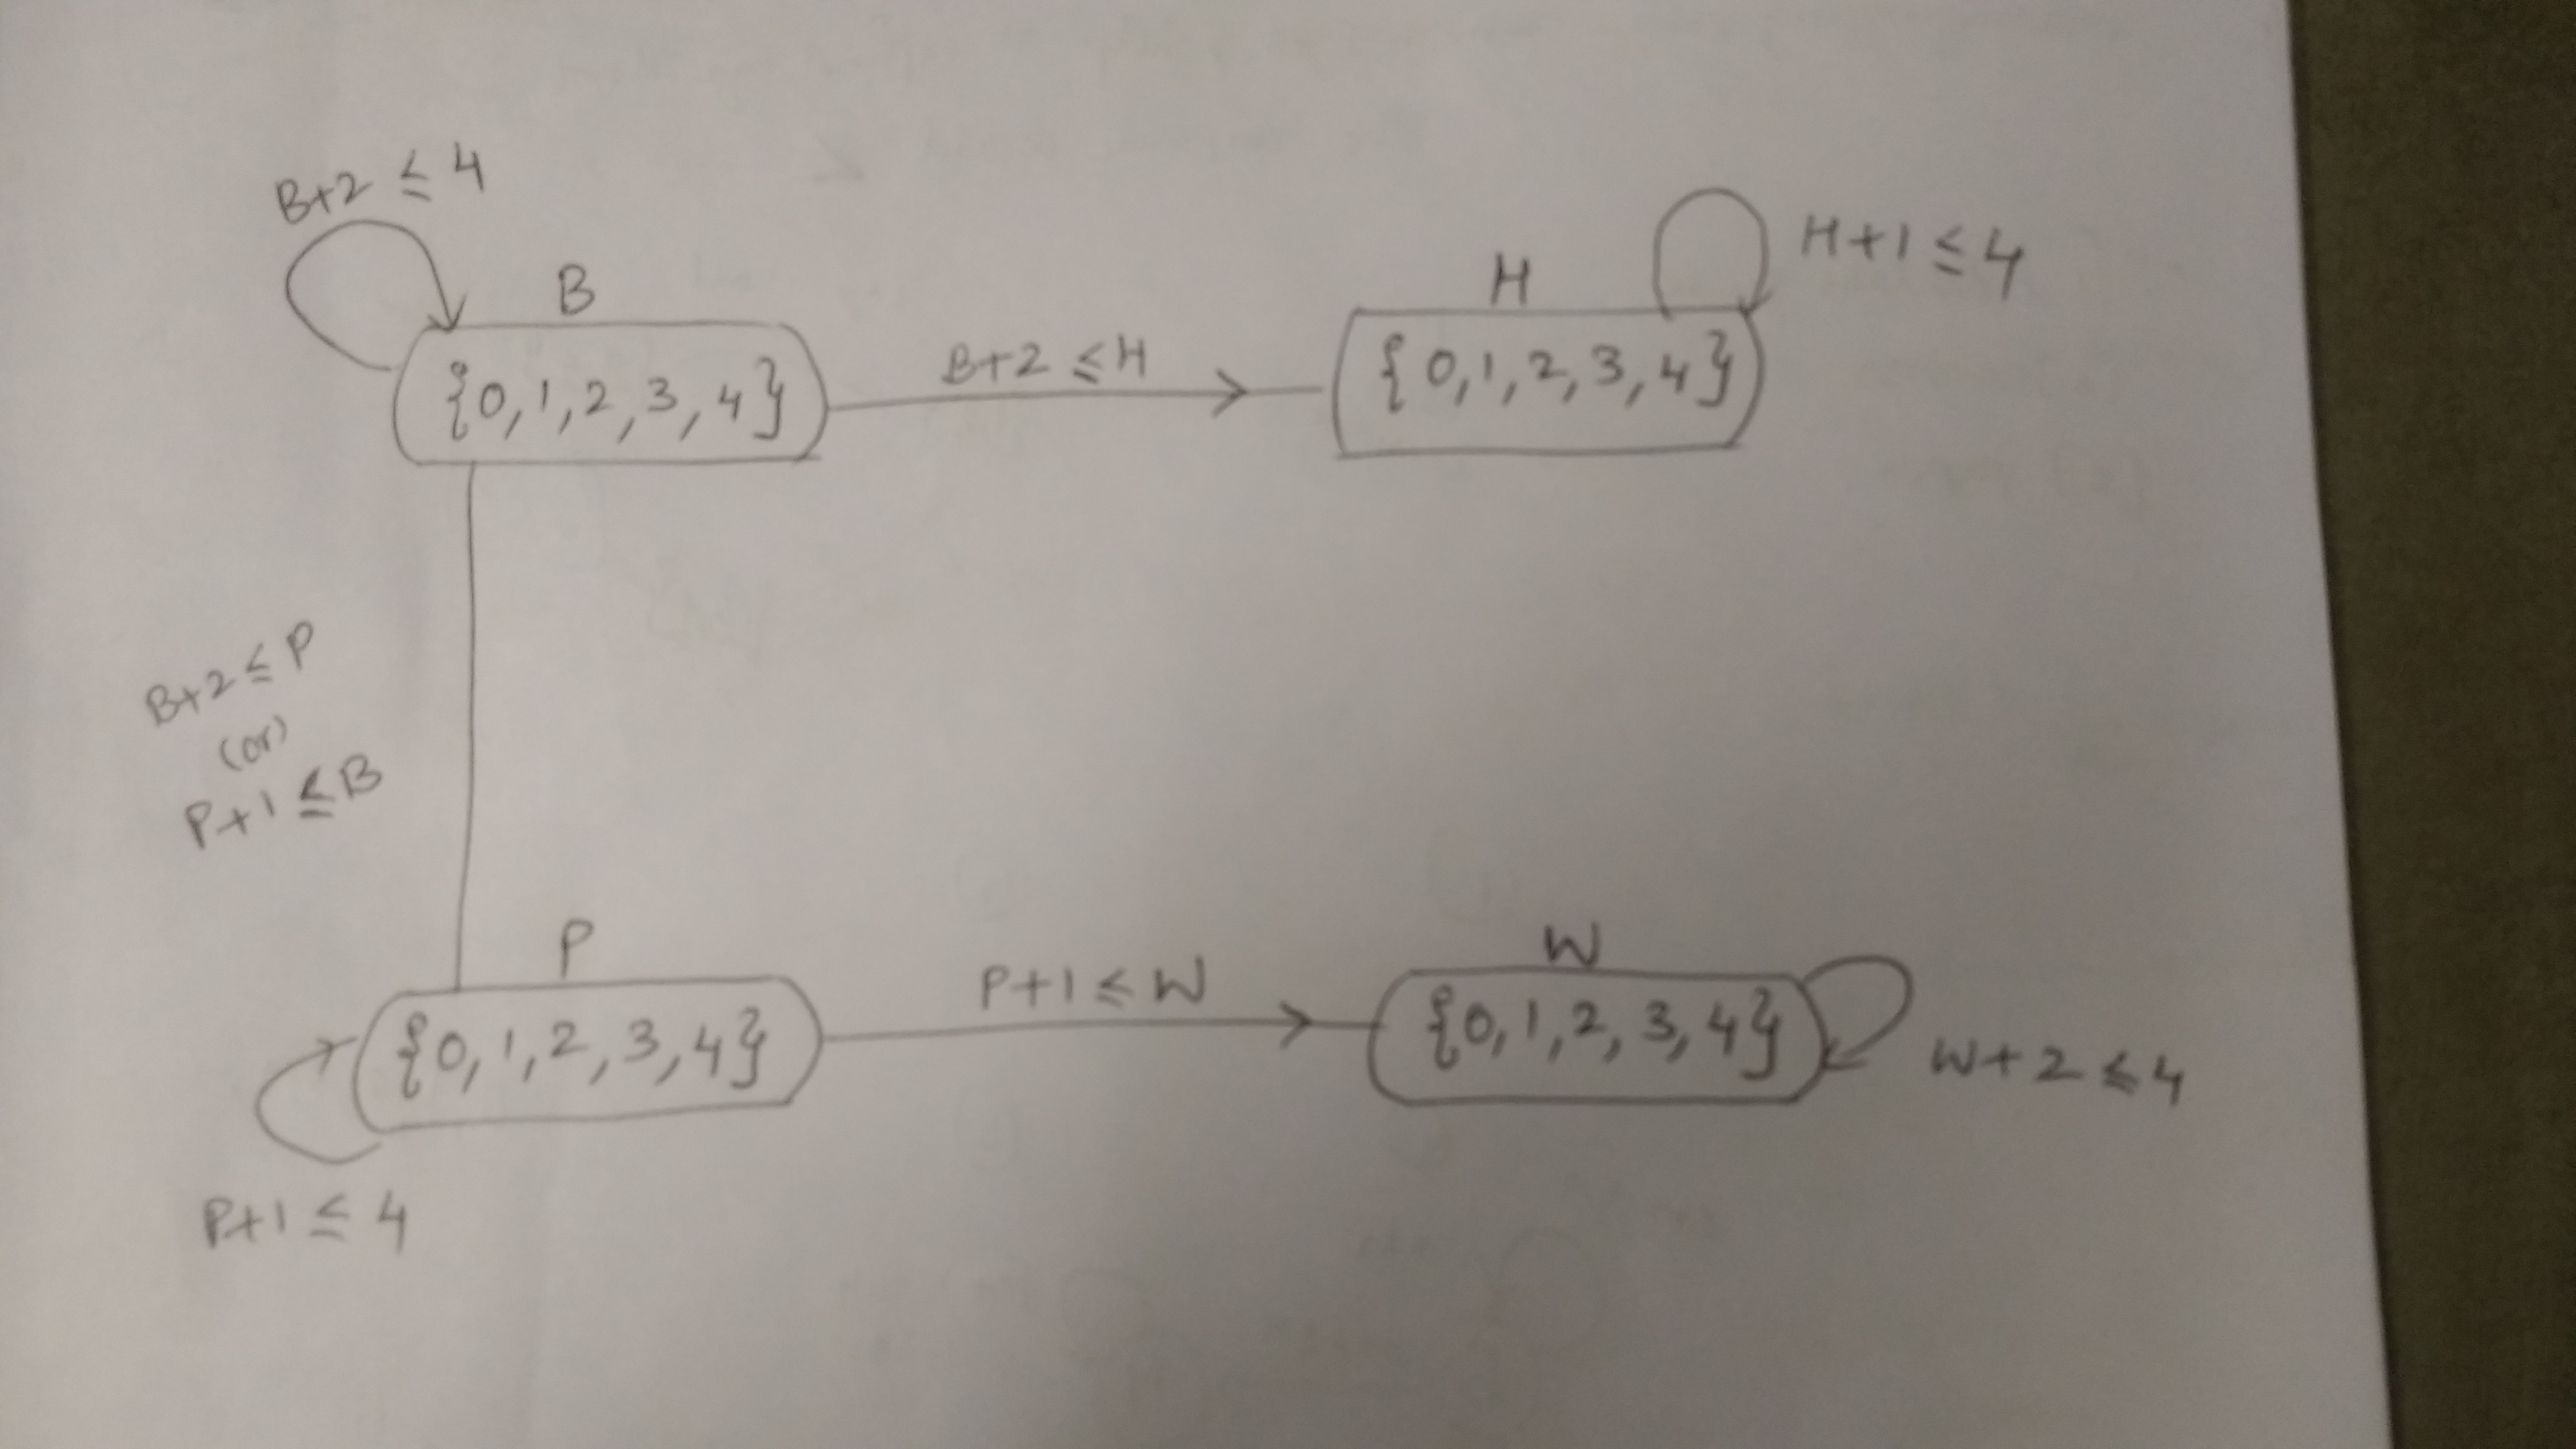 B+2 ≤ 4
B
{0,1,2,3,4}
B+2 ≤ H
H
{0,1,2,3,4}
H+1 ≤ 4
B+2 ≤ P
(or)
P+1 ≤ B
P
{0,1,2,3,4}
P+1 ≤ 4
P+1 ≤ W
W
{0,1,2,3,4}
W+2 ≤ 4